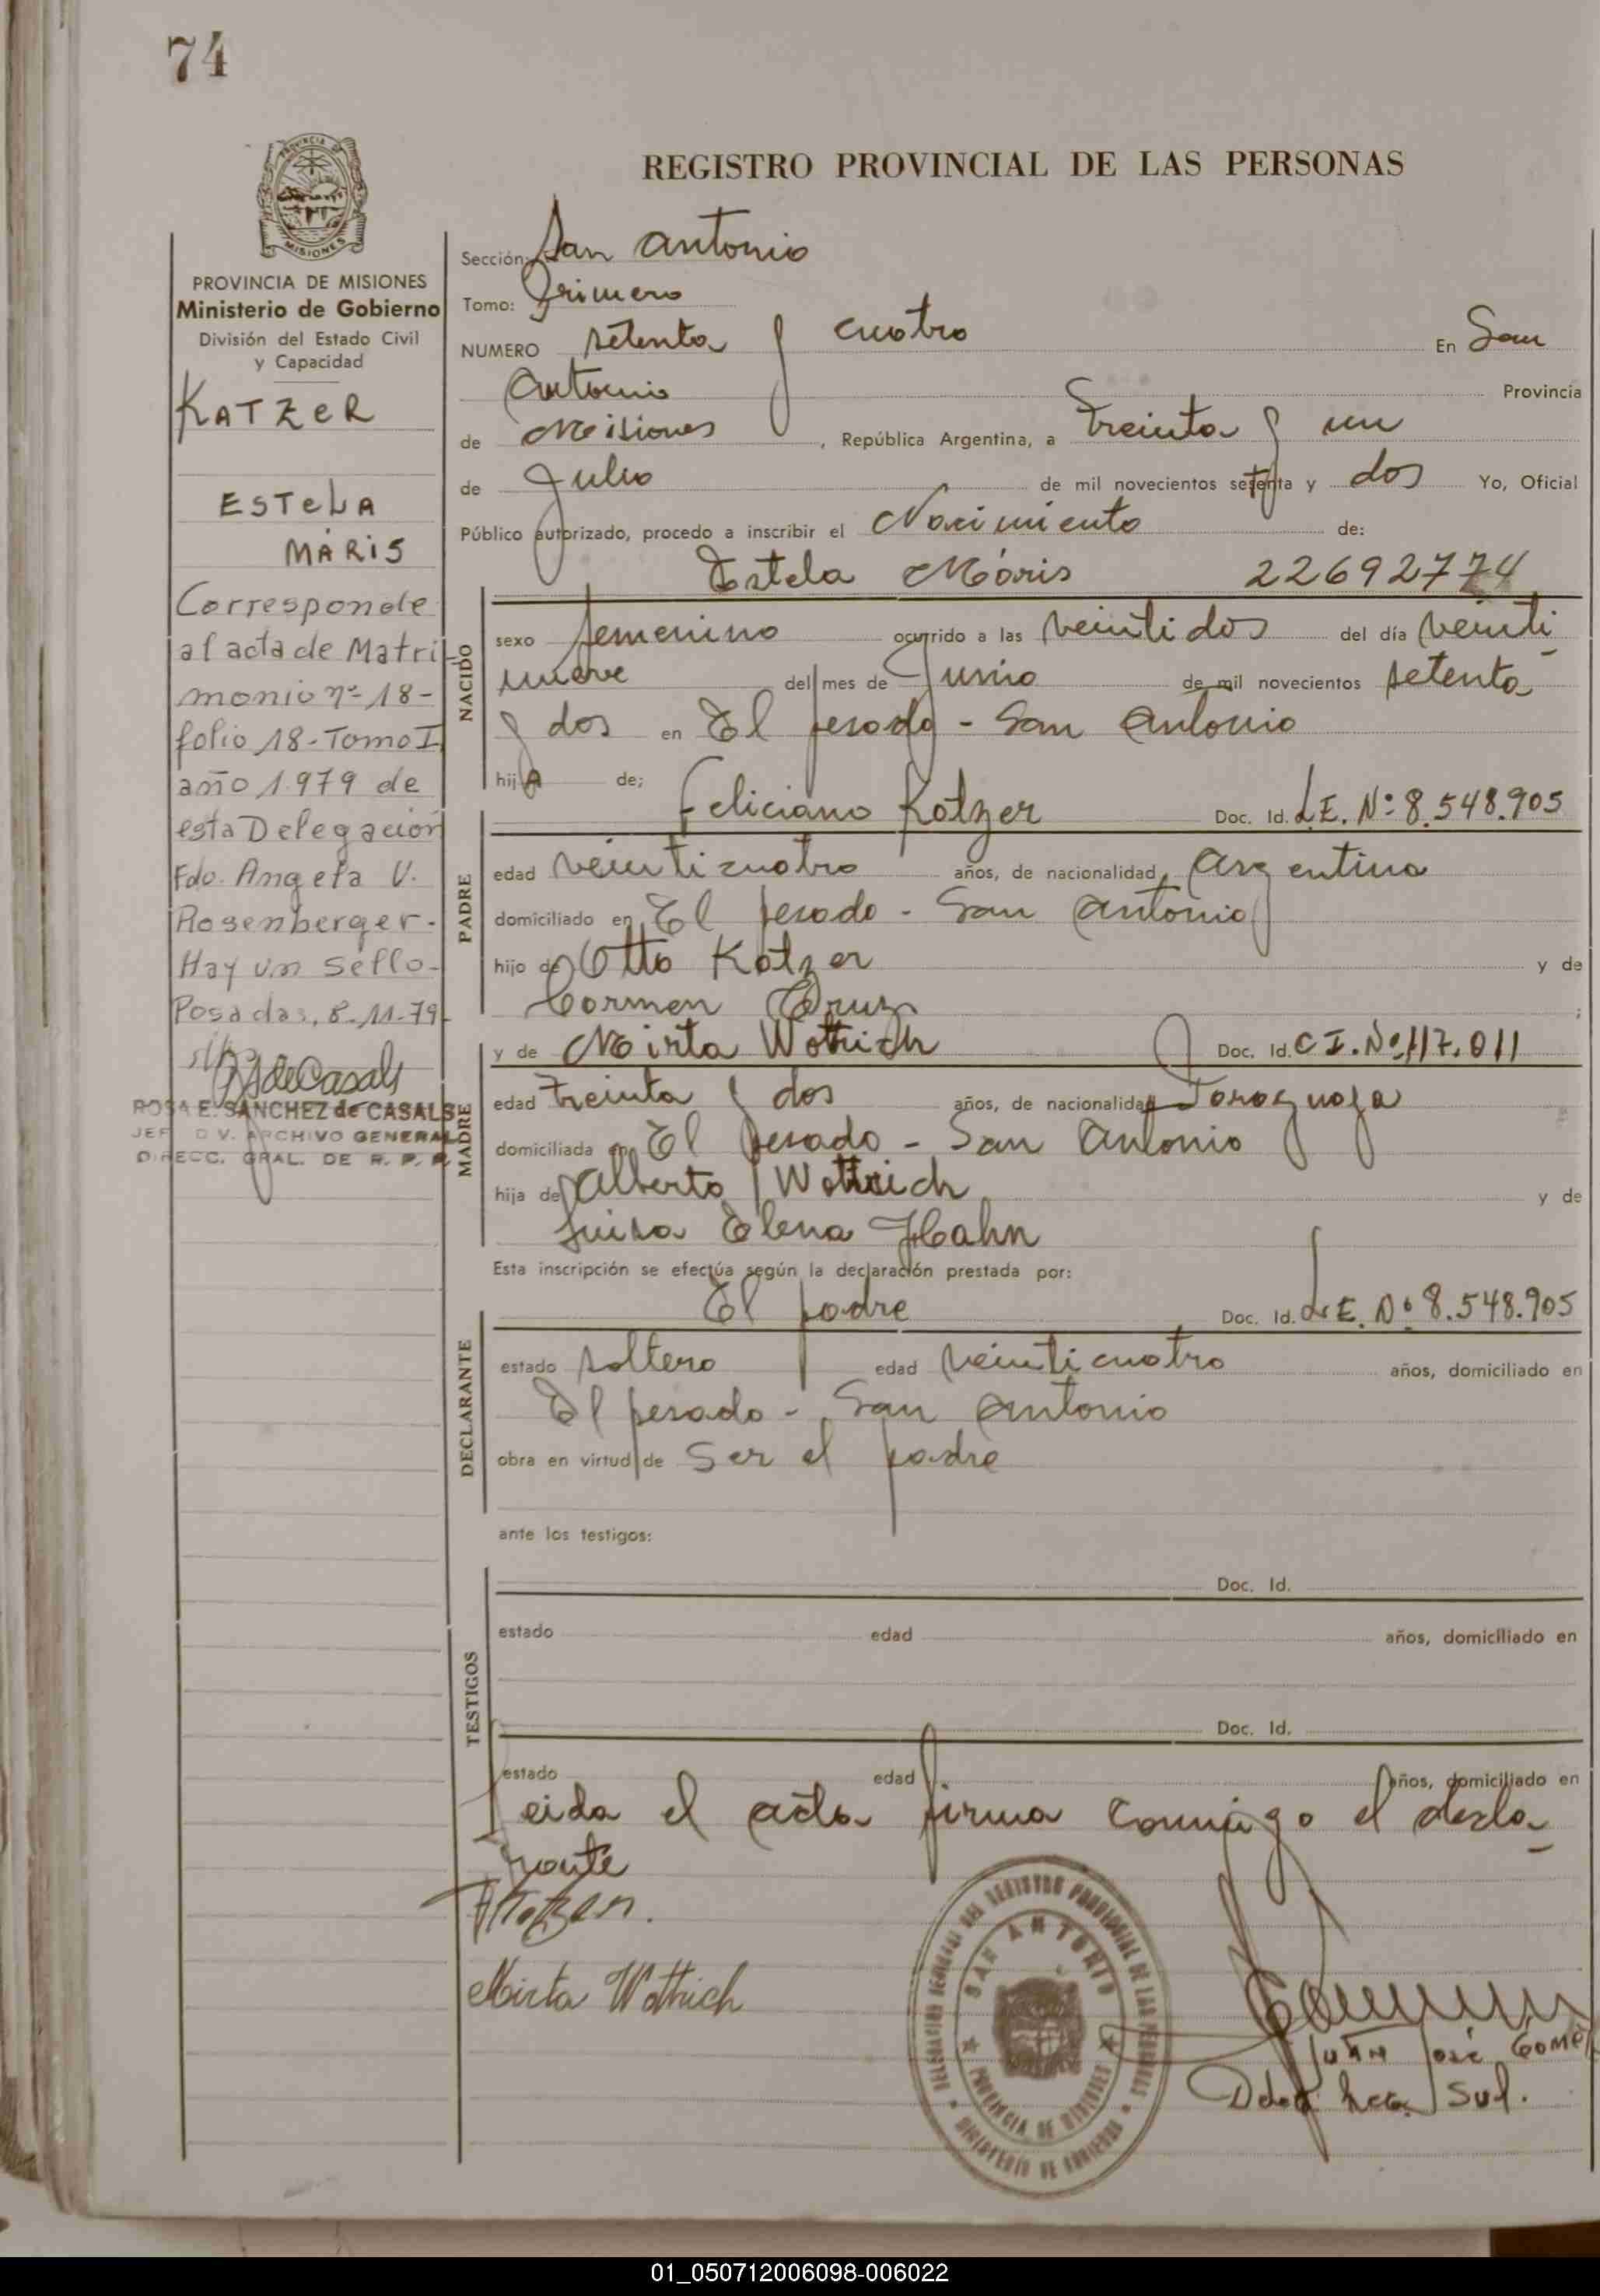 74
PROVINCIA DE MISIONES
MISIONES
PROVINCIA DE MISIONES
Ministerio de Gobierno
División del Estado Civil
y Capacidad
KATZER
ESTELA
MARIS
Corresponde
al acta de Matri
monio nº 18-
folio 18-Tomo I
año 1979 de
esta Delegación
Fdo. Angela V.
Rosenberger-
Hay un sello-
Posadas, 8-11-79-
RSdeCasals
ROSA E. SANCHEZ de CASALS
JEF DIV. ARCHIVO GENERAL
DIRECC. GRAL. DE R. P. P.
REGISTRO PROVINCIAL DE LAS PERSONAS
Sección: San Antonio
Tomo: Primero
NUMERO setenta y cuatro En San
Antonio Provincia
de Misiones, República Argentina, a treinta y un
de Julio de mil novecientos setenta y dos Yo, Oficial
Público autorizado, procedo a inscribir el Nacimiento de:
Estela Máris 22692774
NACIDO
sexo femenino ocurrido a las veintidos del día veinti
nueve del mes de Junio de mil novecientos setenta
y dos en El pesado - San Antonio
hijA de;
Feliciano Katzer Doc. Id. L.E. Nº 8.548.905
PADRE
edad veinticuatro años, de nacionalidad Argentina
domiciliado en El pesado - San Antonio
hijo de Otto Katzer y de
Carmen Cruz ;
y de Mirta Wottrich Doc. Id. C I. Nº 117.011
MADRE
edad treinta y dos años, de nacionalidad Paraguaya
domiciliada en El pesado - San Antonio
hija de Alberto Wottrich y de
Luisa Elena Hahn
Esta inscripción se efectúa según la declaración prestada por:
El padre Doc. Id. L.E. Nº 8.548.905
DECLARANTE
estado soltero edad veinticuatro años, domiciliado en
El pesado - San Antonio
obra en virtud de ser el padre
ante los testigos:
TESTIGOS
Doc. Id.
estado edad años, domiciliado en
Doc. Id.
estado edad años, domiciliado en
Leida el acta firma conmigo el decla
rante
FKatzer.
Mirta Wottrich
DELEGACION SECCIONAL DEL REGISTRO PROVINCIAL DE LAS PERSONAS
SAN ANTONIO
PROVINCIA DE MISIONES
MINISTERIO DE GOBIERNO
JUAN José Gomez
01_050712006098-006022